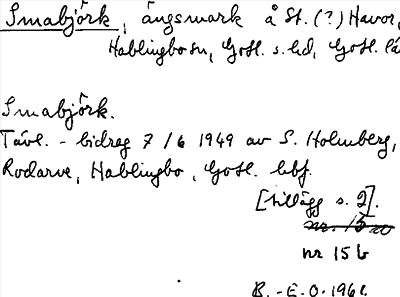 Smabjörk, ängsmark å St. (?) Havor,
Hablingbo sn, Gotl. s. hd, Gotl. lä
Smabjörk.
Tävl.-bidrag 7/6 1949 av S. Holmberg,
Rodarve, Hablingbo, Gotl.
[tillägg s. 2].
nr 15 b
B.-E.O. 196